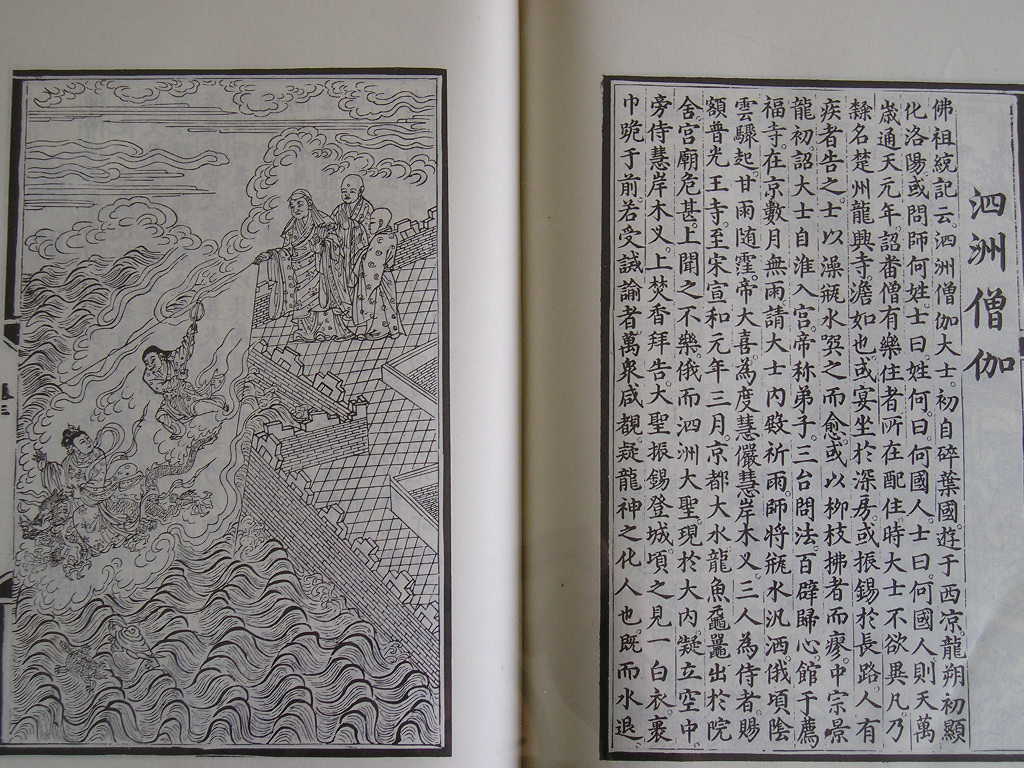 泗洲僧伽
佛祖統記云。泗洲僧伽大士。初自碎葉國遊于西凉。龍朔初顯
化洛陽。或問師何姓。士曰。姓何。曰。何國人。士曰。何國人。則天萬
歲通天元年。詔畨僧有樂住者所在配住。時大士不欲異凡。乃
隸名楚州龍興寺澹如也。或宴坐於深房。或振錫於長路。人有
疾者告之。士以澡瓶水哭之而愈。或以柳枝拂者而瘳。中宗景
龍初。詔大士自淮入宮。帝称弟子。三台問法。百辟歸心。館于薦
福寺。在京數月無雨。請大士內殿祈雨。師將瓶水汎洒。俄頃陰
雲驟起。甘雨随霔。帝大喜。為度慧儼慧岸木叉。三人為侍者。賜
額普光王寺。至宋宣和元年三月。京都大水。龍魚黿鼉出於院
舍。宮廟危甚。上聞之不樂。俄而泗洲大聖。現於大內。凝立空中。
旁侍慧岸木叉。上焚香拜告。大聖振錫登城。頃之見一白衣裹
巾跪于前。若受誡諭者。萬衆咸覩。疑龍神之化人也。既而水退。
卷三